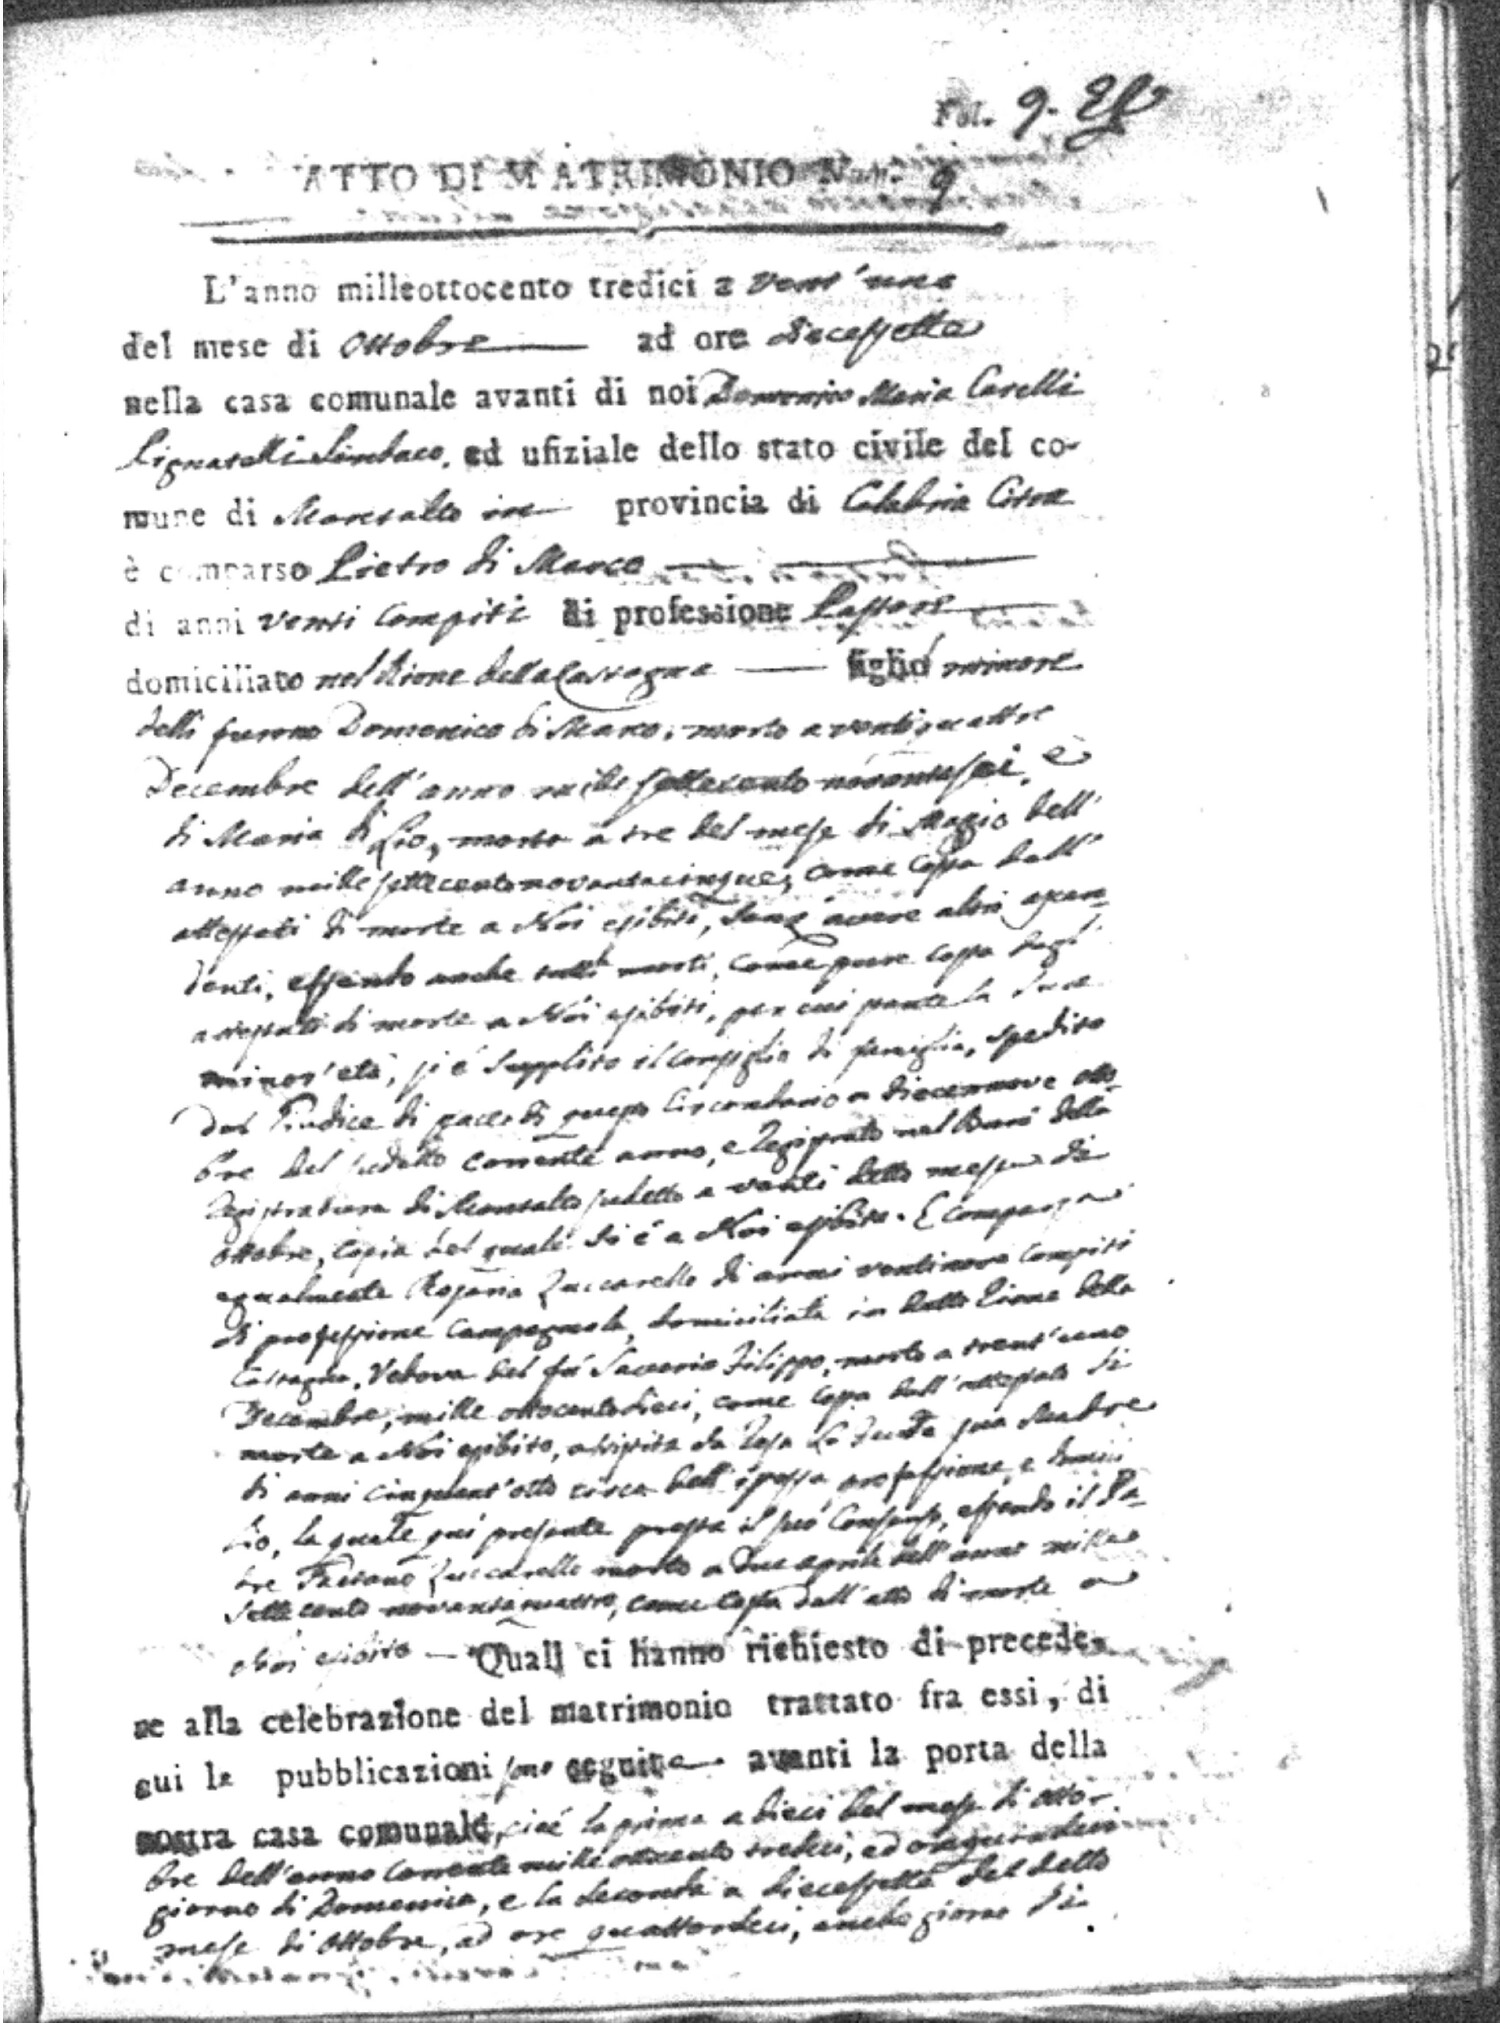 Fol. 9.
ATTO DI MATRIMONIO Num. 9
L'anno milleottocento tredici a vent'uno
del mese di Ottobre ad ore diecessette
nella casa comunale avanti di noi Domenico Maria Carelli
Pignatelli Sindaco, ed ufiziale dello stato civile del co-
mune di Montalto in provincia di Calabria Citra
è comparso Pietro di Marco
di anni venti compiti di professione Pastore
domiciliato nel Rione della Castagna figlio minore
delli furono Domenico di Marco, morto a venti quattro
Decembre dell'anno mille settecento novantasei, e
di Maria di Lio, morta a tre del mese di Magio dell'
anno mille settecento novantacinque, come costa dall'
attestati di morte a Noi esibiti, senz'avere altri ascen-
denti, essendo anche tutti morti, come pure costa dagl'
attestati di morte a Noi esibiti, per cui stante la sua
minor'età, si è supplito il consiglio di famiglia, spedito
dal Giudice di pace di questo Circondario a diecennove otto-
bre del sudetto corrente anno, e Registrato nel Burò della
Registratura di Montalto sudetto a venti detto mese di
ottobre, copia del quale si è a Noi esibita. E comparsa
egualmente Rosaria Zuccarello di anni ventinove compiti
di professione Campagnola, domiciliata in detto Rione della
Castagna, Vedova del fu Saverio Filippo, morto a trent'uno
Decembre, mille ottocentodieci, come costa dall'attestato di
morte a Noi esibito, assistita da Rosa sua Madre
di anni cinquant'otto circa dell'istessa professione, e domici
lio, la quale qui presente presta il suo Consenso, essendo il Pa-
dre Gaetano Zuccarello morto a due aprile dell'anno mille
settecento novantaquattro, come costa dall'atto di morte a
Noi esibito — Quali ci hanno richiesto di precede-
re alla celebrazione del matrimonio trattato fra essi, di
cui le pubblicazioni sono seguite avanti la porta della
nostra casa comunale, cioè la prima a dieci del mese di otto-
bre dell'anno corrente mille ottocento tredici, ad ore quattordeci
giorno di Domenica, e la seconda a diecessette del detto
mese di ottobre, ad ore quattordeci, anche giorno di